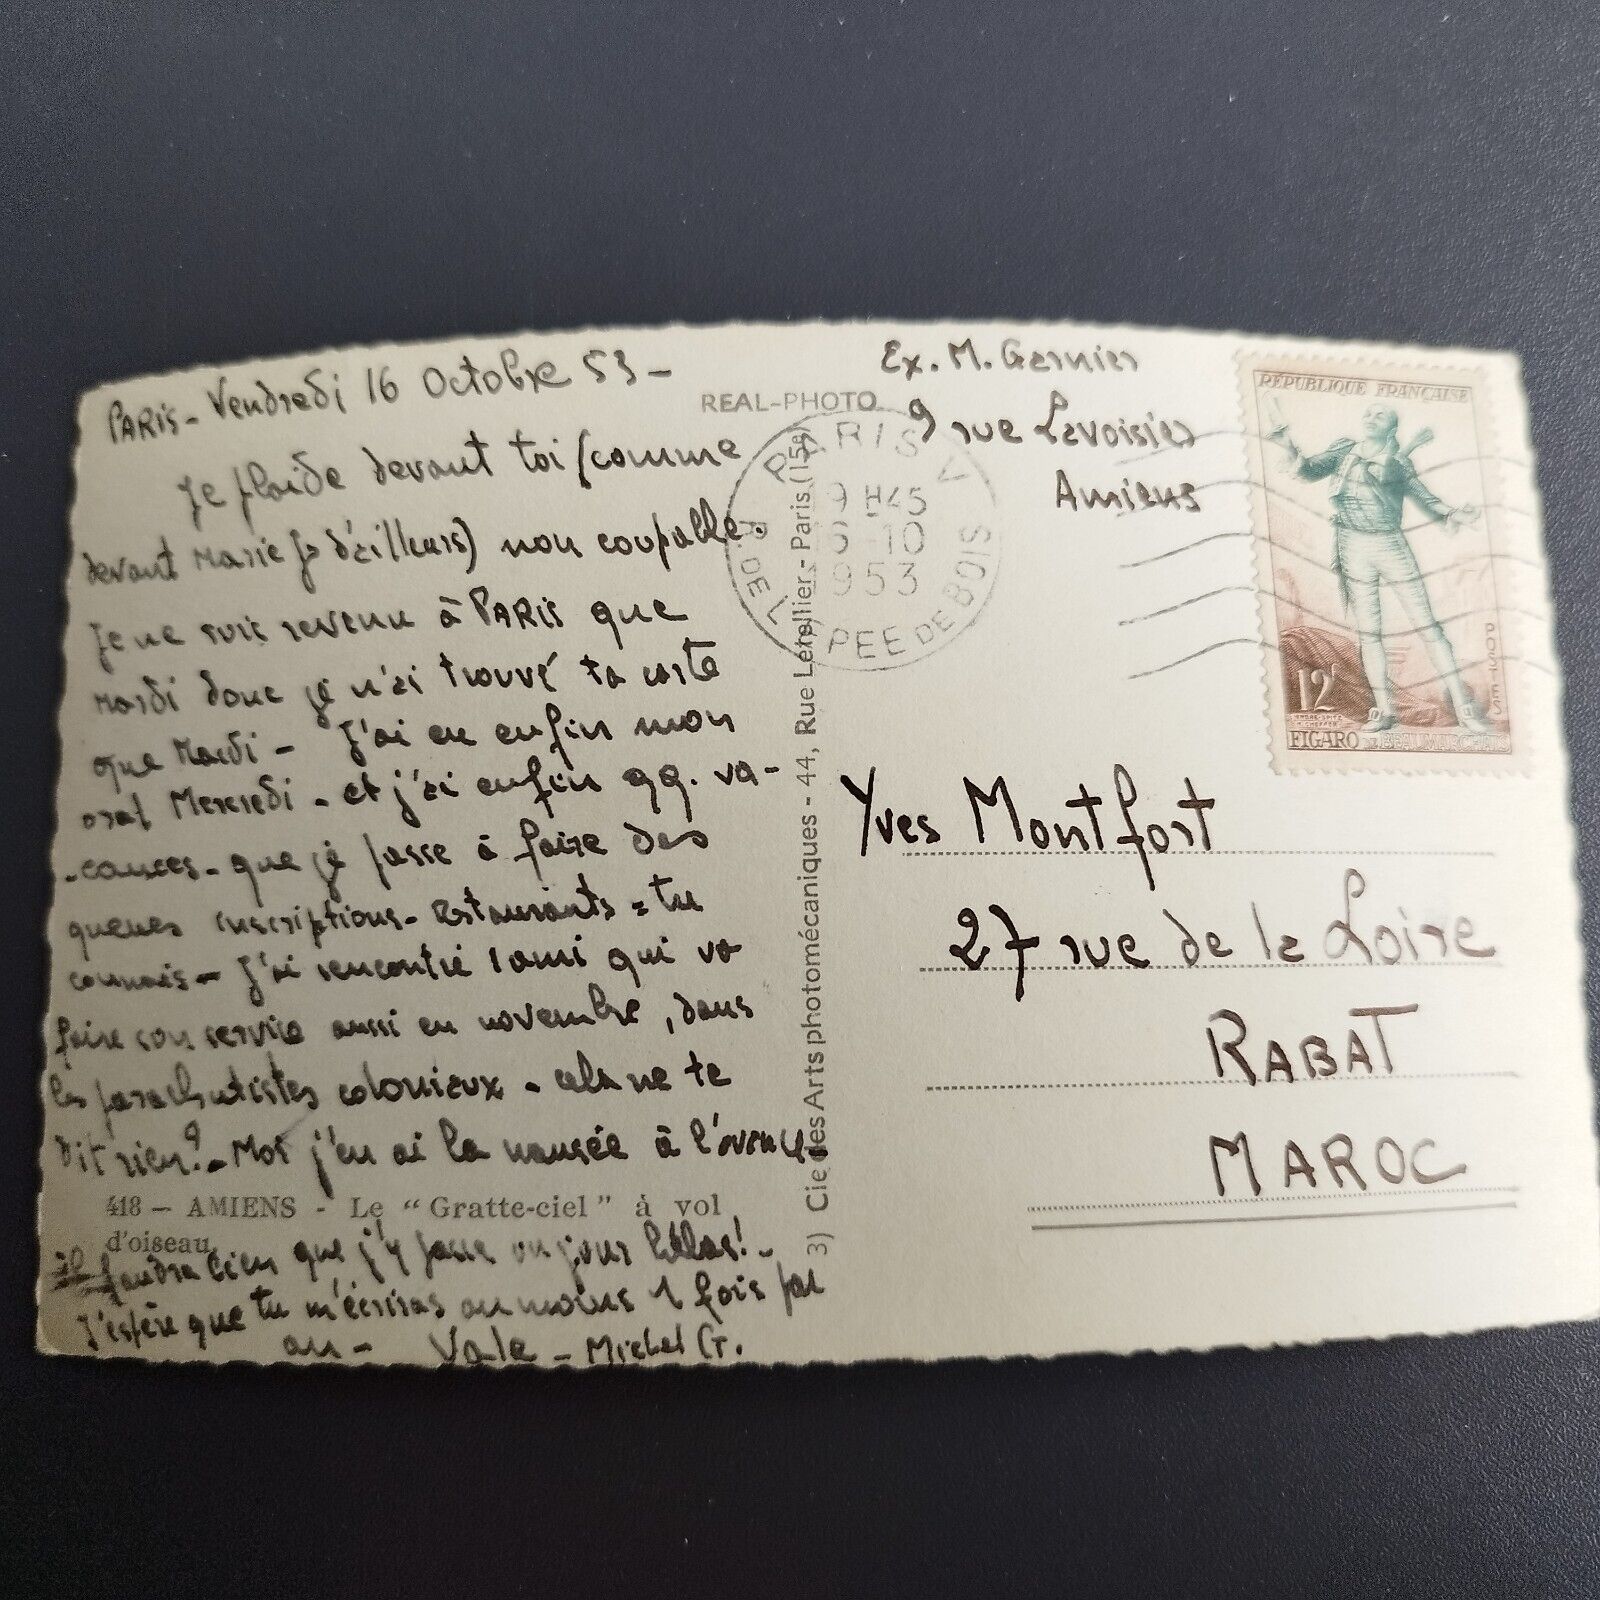 PARIS - Vendredi 16 Octobre 53 -
Je plaide devant toi (comme
devant Marie Jo d'ailleurs) non coupable.
Je ne suis revenu à PARIS que
Mardi donc je n'ai trouvé ta carte
que Mardi - J'ai eu enfin mon
oral Mercredi - et j'ai enfin qq. va-
-cances - que je passe à faire des
queues inscriptions - restaurants = tu
connais - J'ai rencontré 1 ami qui va
faire son service aussi en novembre, dans
les parachutistes coloniaux - cela ne te
dit rien? - Moi j'en ai la nausée à l'avance -
418 — AMIENS - Le "Gratte-ciel" à vol
d'oiseau
il faudra bien que j'y passe un jour hélas! -
J'espère que tu m'écriras au moins 1 fois par
an - Vale - Michel G.
REAL-PHOTO
3) Cie des Arts photomécaniques - 44, Rue Letellier - Paris (15e)
Ex. M. Garnier
9 rue Lavoisier
Amiens
PARIS V
9H45
6-10
1953
R. DE L'EPEE DE BOIS
RÉPUBLIQUE FRANÇAISE
POSTES
12F
FIGARO DE BEAUMARCHAIS
Yves Montfort
27 rue de la Loire
RABAT
MAROC